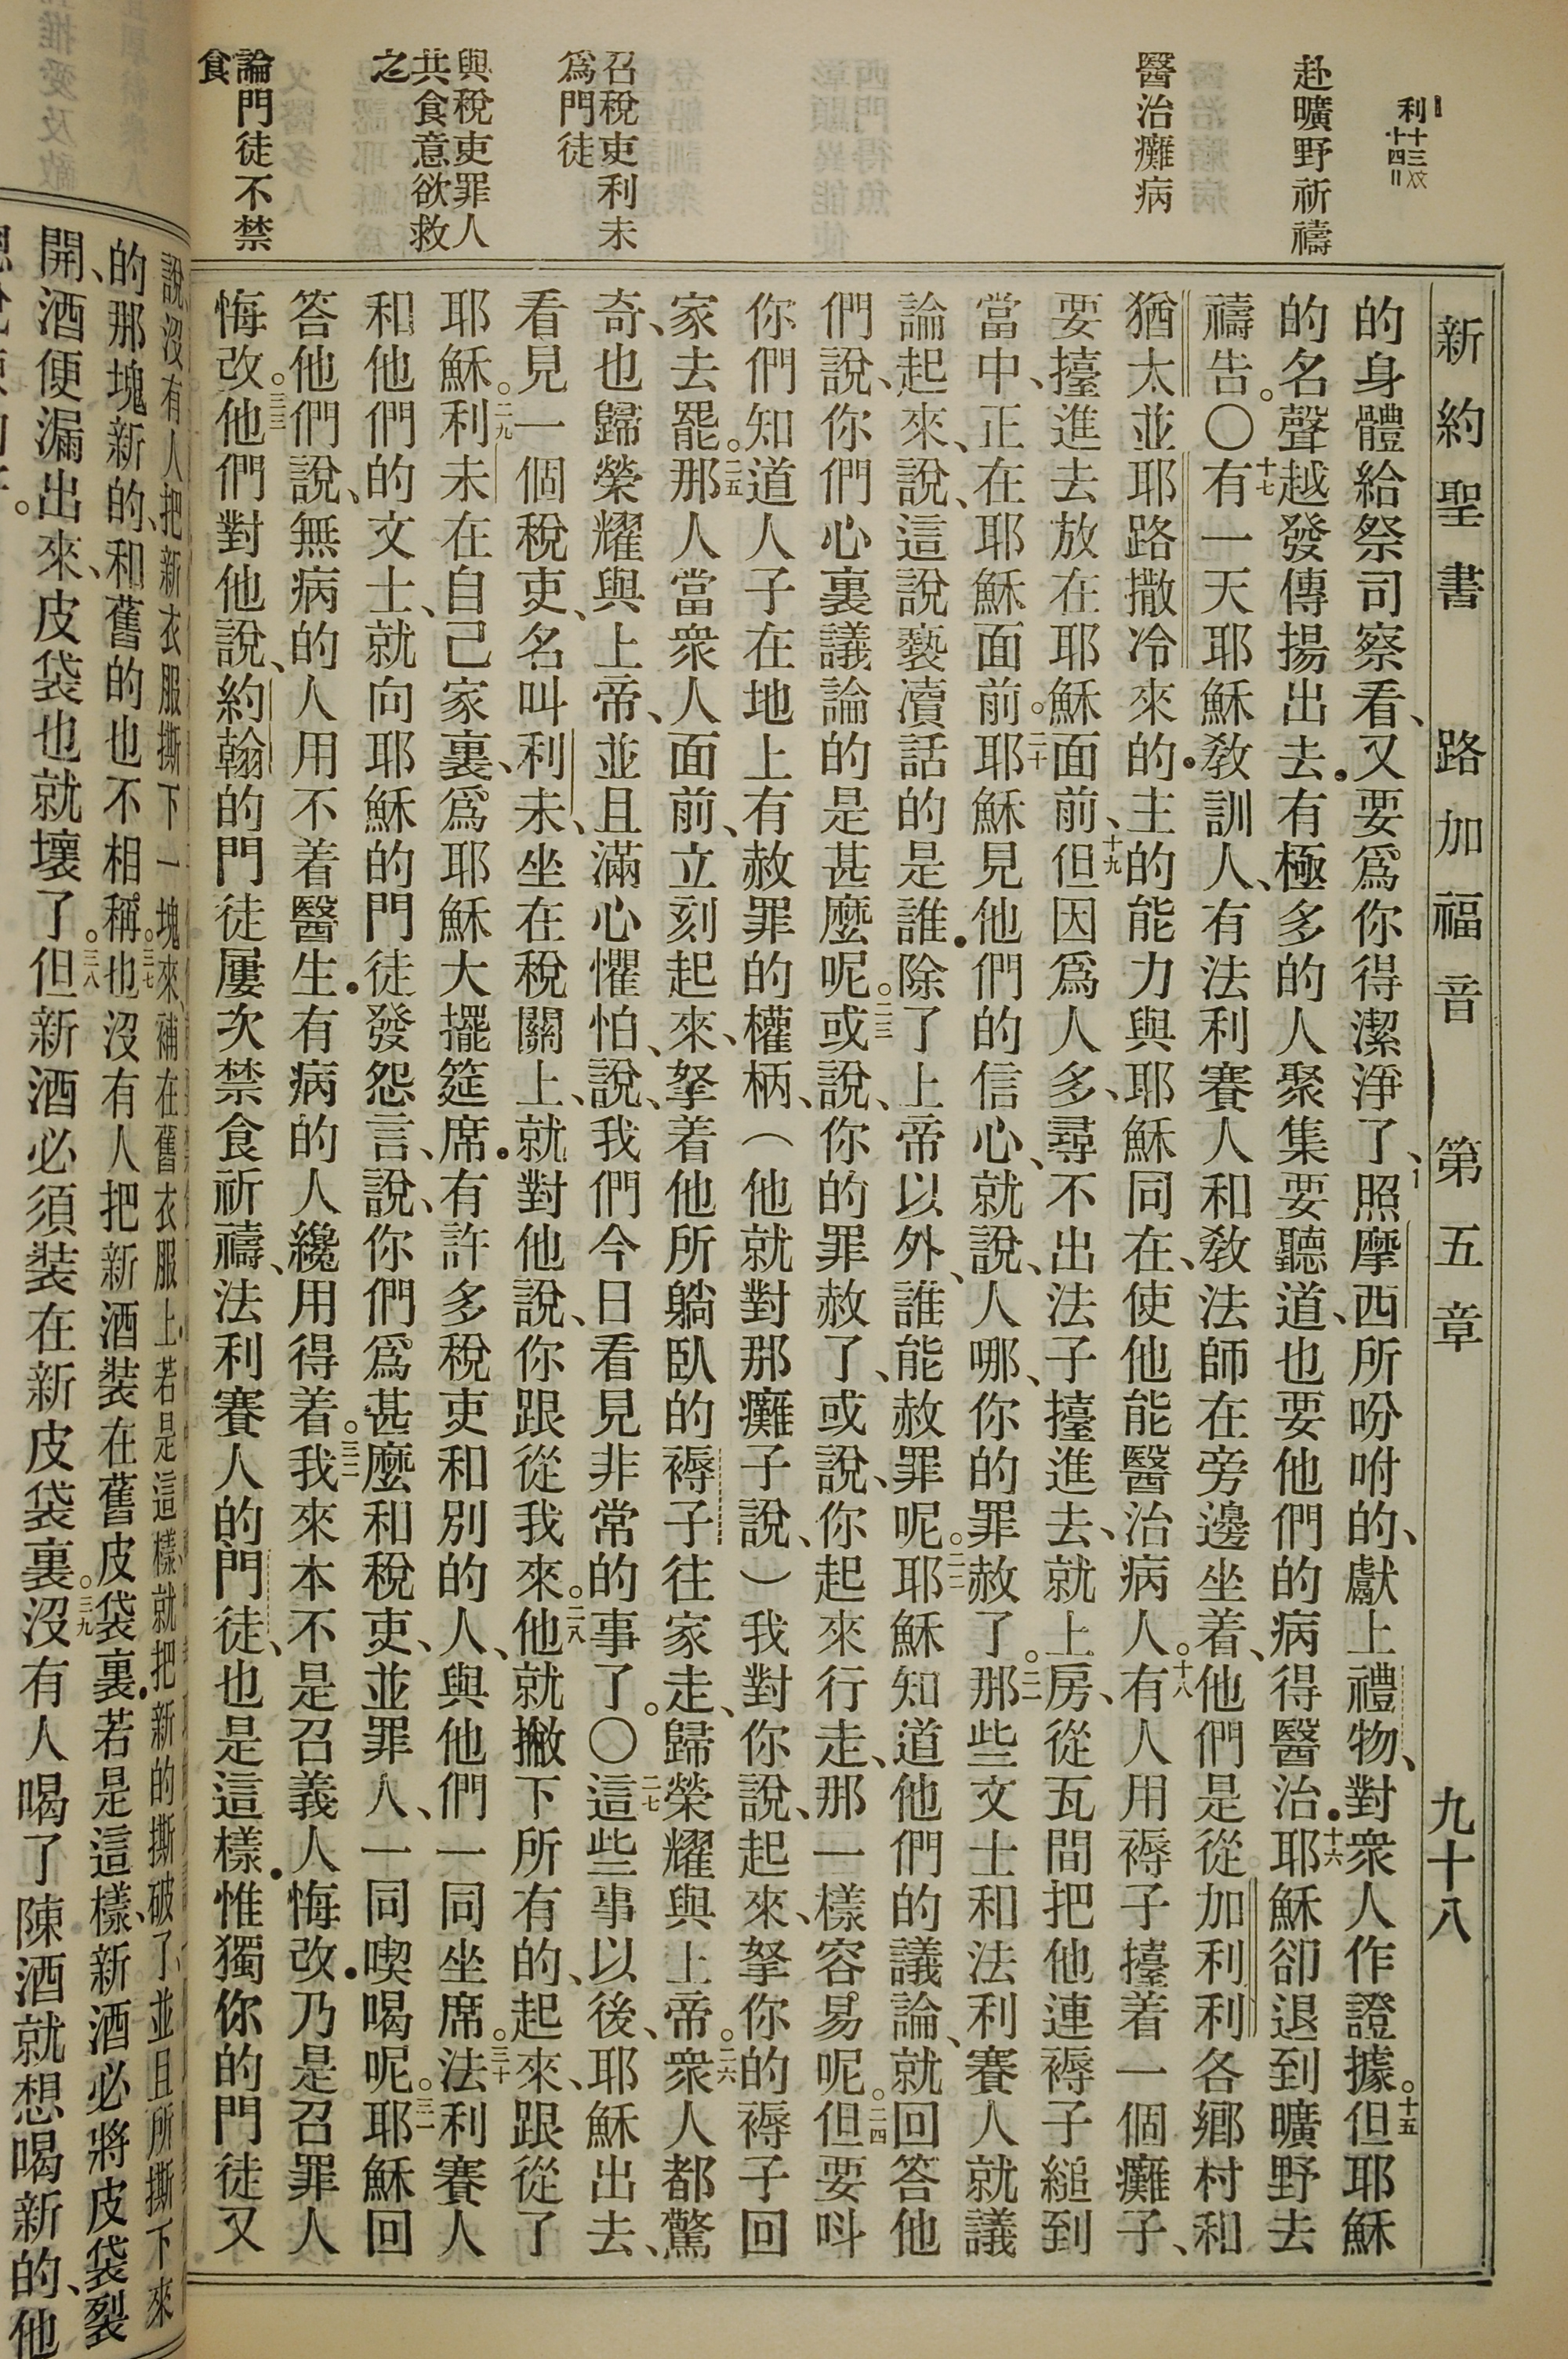 新約聖書　路加福音　第五章　九十八
利十三及十四
赴曠野祈禱
醫治癱病
召稅吏利未
爲門徒
與稅吏罪人
共食意欲救
之
論門徒不禁
食
的身體給祭司察看、又要爲你得潔淨了、照摩西所吩咐的、獻上禮物、對衆人作證據。十五但耶穌
的名聲越發傳揚出去．有極多的人聚集要聽道、也要他們的病得醫治．十六耶穌卻退到曠野去
禱告。〇十七有一天耶穌敎訓人、有法利賽人和敎法師在旁邊坐着、他們是從加利利各鄉村和
猶太並耶路撒冷來的．主的能力與耶穌同在、使他能醫治病人。十八有人用褥子擡着一個癱子、
要擡進去放在耶穌面前、十九但因爲人多、尋不出法子擡進去、就上房、從瓦間把他連褥子縋到
當中、正在耶穌面前。二十耶穌見他們的信心、就說、人哪、你的罪赦了。二一那些文士和法利賽人就議
論起來、說、這說褻瀆話的是誰．除了上帝以外、誰能赦罪呢。二二耶穌知道他們的議論、就回答他
們說、你們心裏議論的是甚麼呢。二三或說、你的罪赦了、或說、你起來行走、那一樣容易呢。二四但要呌
你們知道人子在地上有赦罪的權柄、（他就對那癱子說、）我對你說、起來、拏你的褥子回
家去罷。二五那人當衆人面前、立刻起來、拏着他所躺臥的褥子往家走、歸榮耀與上帝。二六衆人都驚
奇、也歸榮耀與上帝、並且滿心懼怕、說、我們今日看見非常的事了。〇二七這些事以後、耶穌出去、
看見一個稅吏、名叫利未、坐在稅關上、就對他說、你跟從我來。二八他就撇下所有的、起來、跟從了
耶穌。二九利未在自己家裏、爲耶穌大擺筵席．有許多稅吏和別的人、與他們一同坐席。三十法利賽人
和他們的文士、就向耶穌的門徒發怨言、說、你們爲甚麼和稅吏、並罪人、一同喫喝呢。三一耶穌回
答他們說、無病的人用不着醫生．有病的人纔用得着。三二我來本不是召義人悔改．乃是召罪人
悔改。三三他們對他說、約翰的門徒屢次禁食祈禱、法利賽人的門徒、也是這樣．惟獨你的門徒又
說、沒有人把新衣服撕下一塊來、補在舊衣服上．若是這樣、就把新的撕破了、並且所撕下來
的那塊新的、和舊的也不相稱。三七也沒有人把新酒裝在舊皮袋裏．若是這樣、新酒必將皮袋裂
開、酒便漏出來、皮袋也就壞了。三八但新酒必須裝在新皮袋裏。三九沒有人喝了陳酒就想喝新的、他